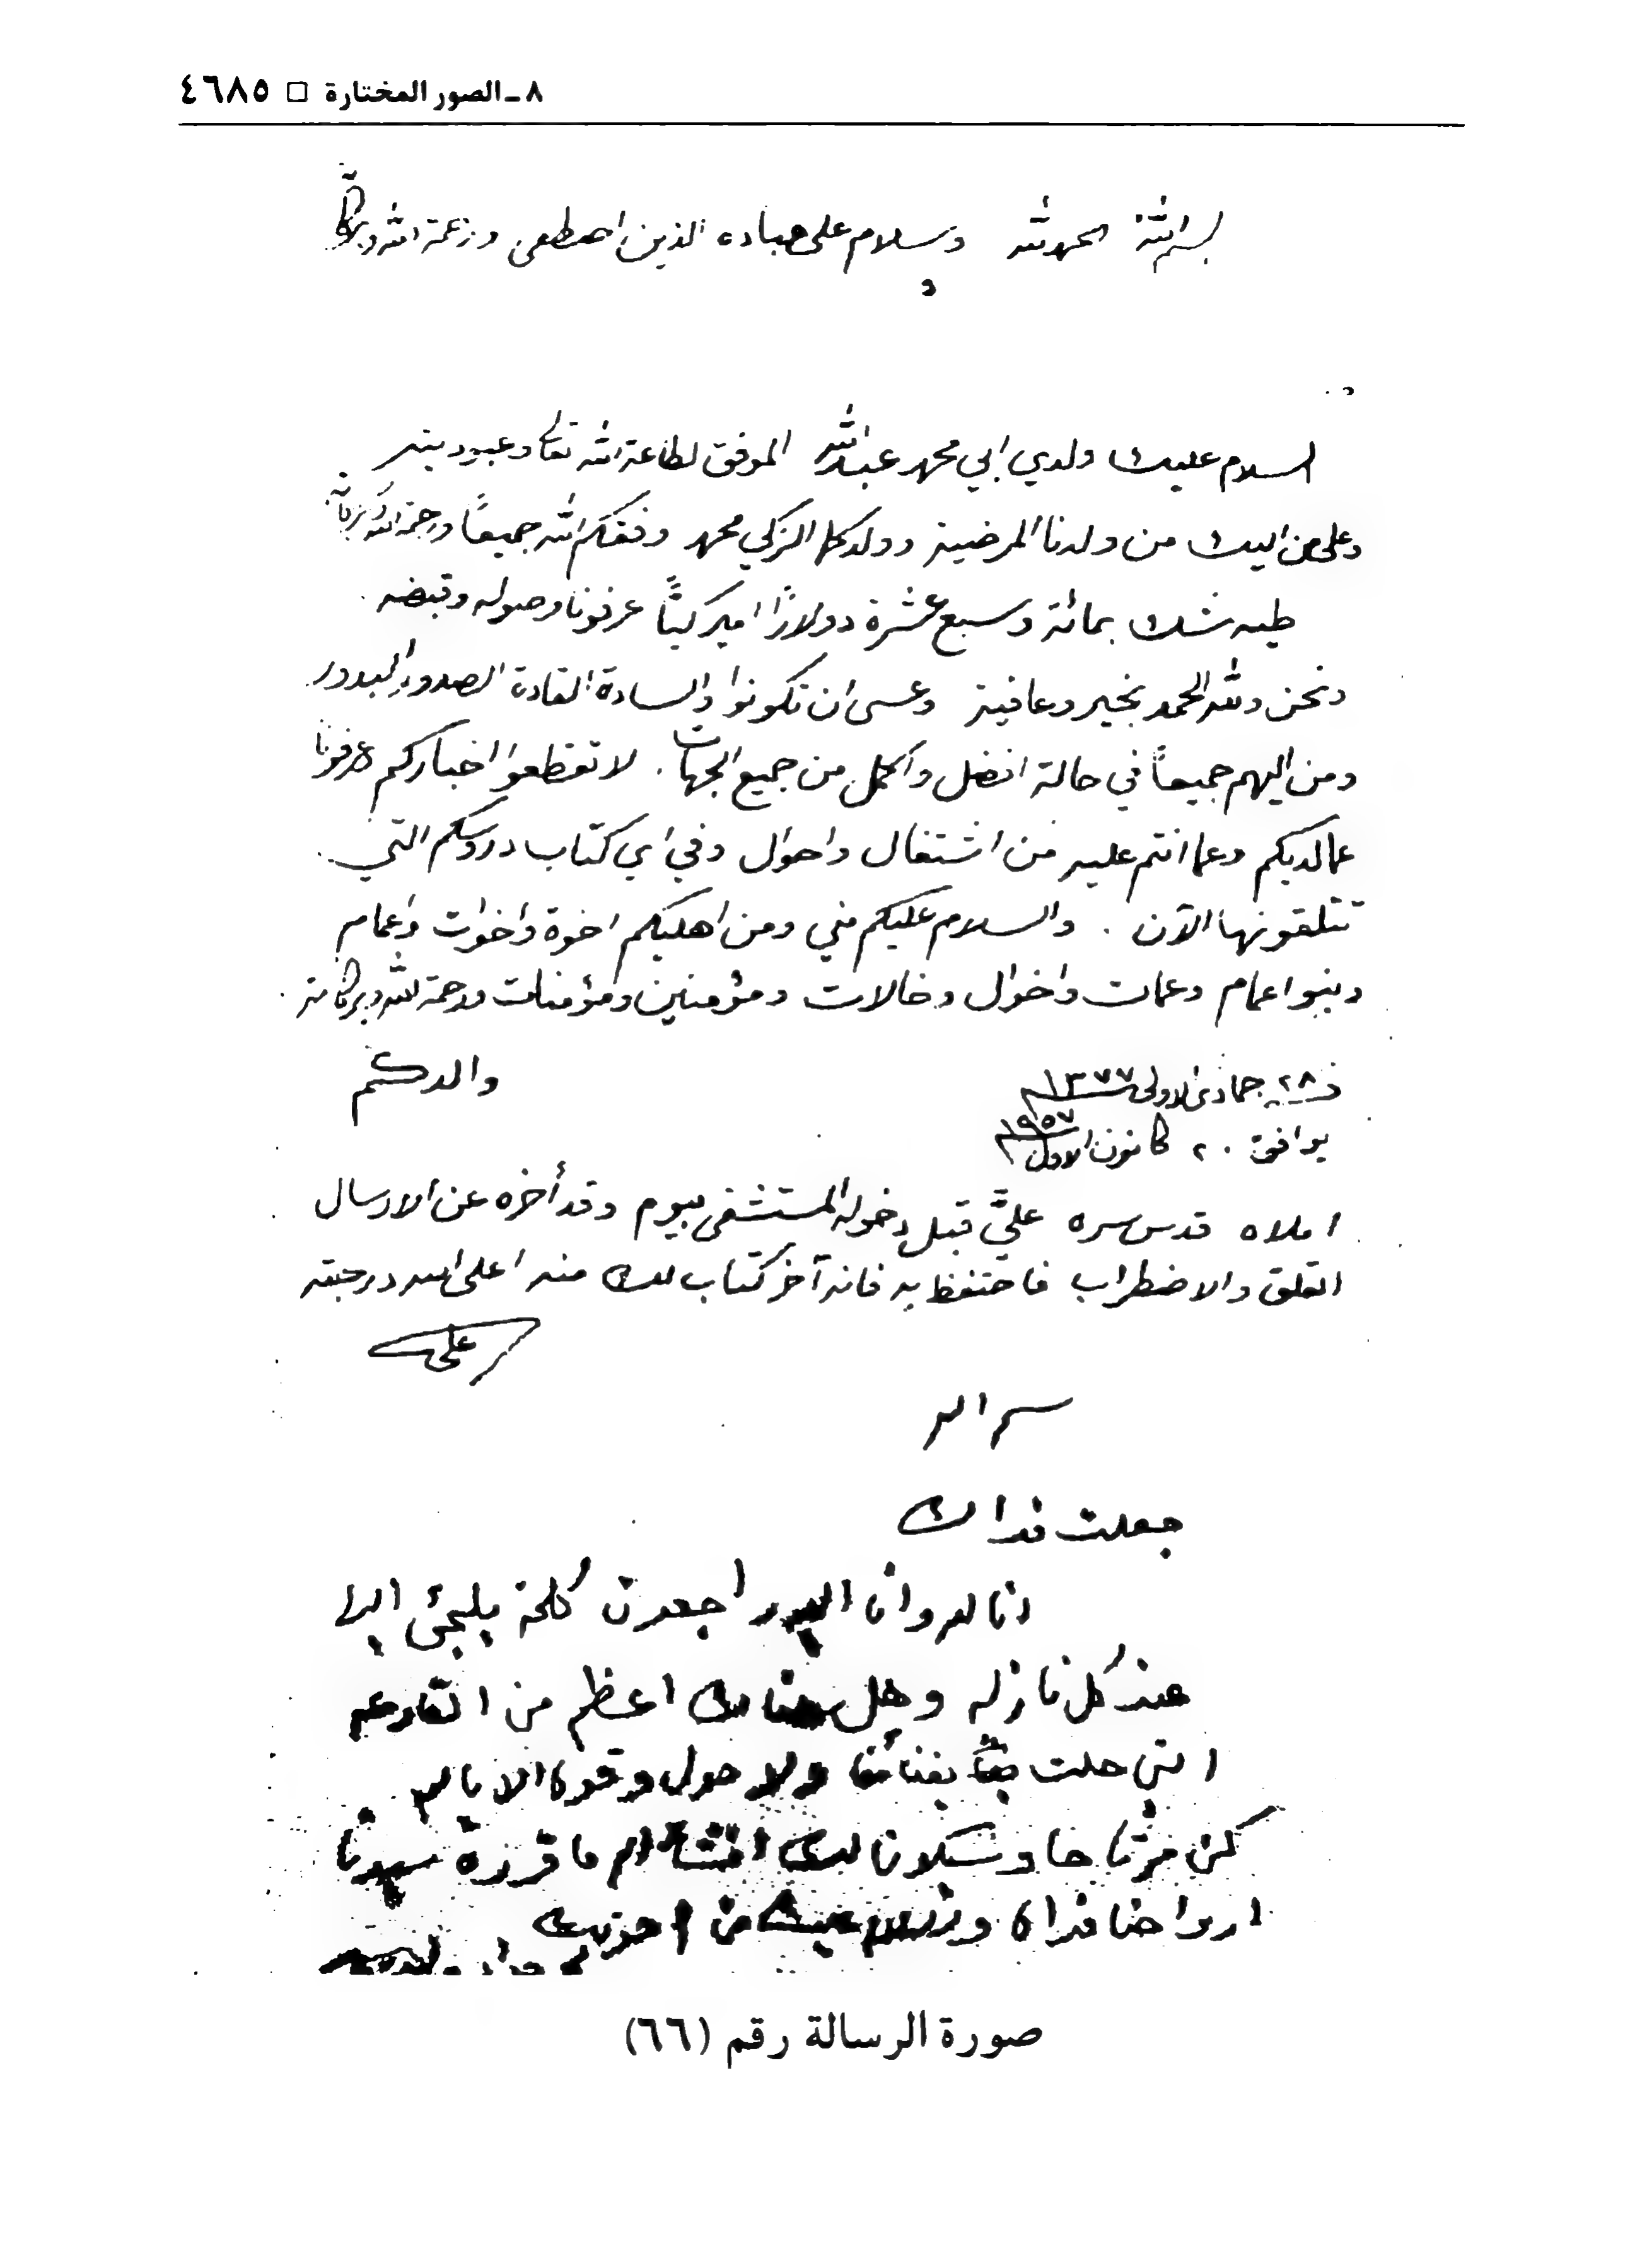 ٨ـ الصور المختارة □ ٤٦٨٥
بسم الله الحمد لله وسلام على عباده الذين اصطفى ورحمة الله وبركاته
السلام عليك ولدي ابي محمد عبدالله الموفق لطاعة الله تعالى وعبوديته
وعلى من اليك من ولدنا المرضية وولدكما الزكي محمد وفقكم الله جميعاً ورحمة الله وبركاته
طيه شك بمائة وسبع عشرة دولارًا اميركيًا عرفونا وصوله وقبضه
ونحن ولله الحمد بخير وعافية وعسى ان تكونوا والسادة القادة الصدور البدور
ومن اليهم جميعاً في حالة افضل واكمل من جميع الجهات. لا تقطعوا اخباركم عرفونا
عما لديكم وعما انتم عليه من اشتغال واحوال وفي اي كتاب دروسكم التي
تتلقونها الآن. والسلام عليكم مني ومن اهليكم اخوة واخوات واعمام
وبنوا عمام وعمات واخوال وخالات ومؤمنين ومؤمنات ورحمة الله وبركاته.
في ٢٨ جمادى الاولى ١٣٧٧ والدكم
يوافق ٢٠ كانون الاول ١٩٥٧
املاه قدس سره عليَّ قبل دخوله المستشفى بيوم وقد أخره عن الارسال
القلق والاضطراب فاحتفظ به فانه آخر كتاب لك منه اعلى الله درجته
علي
بسم الله
جعلت فداك
انا لله وانا اليه راجعون كلمة يلجئ اليها
عند كل نازله وهل هنالك اعظم من القارعه
التي حلت بفنائنا ولا حول وقوه الا بالله
كن فرحا لدى ما قرره سيدنا
ارواحنا فداه من
صورة الرسالة رقم (٦٦)